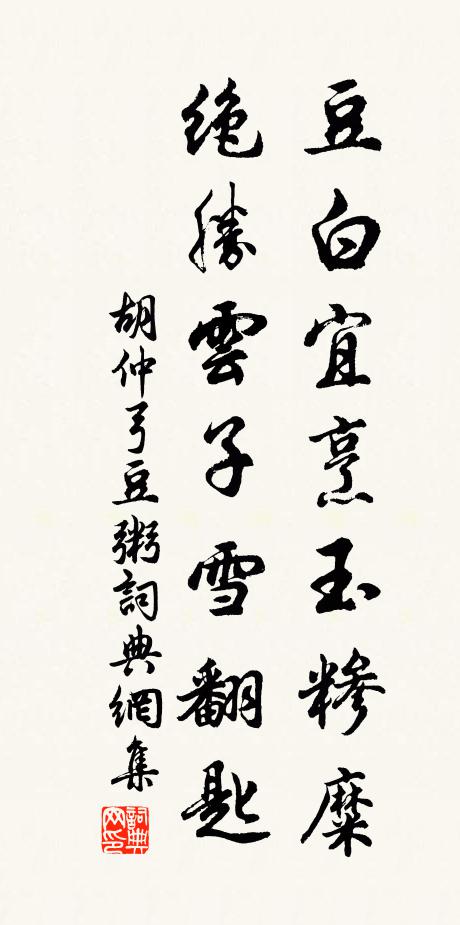 豆白宜烹玉糝糜
絶勝雲子雪翻匙
胡仲弓豆粥詞典網集
詞典網印